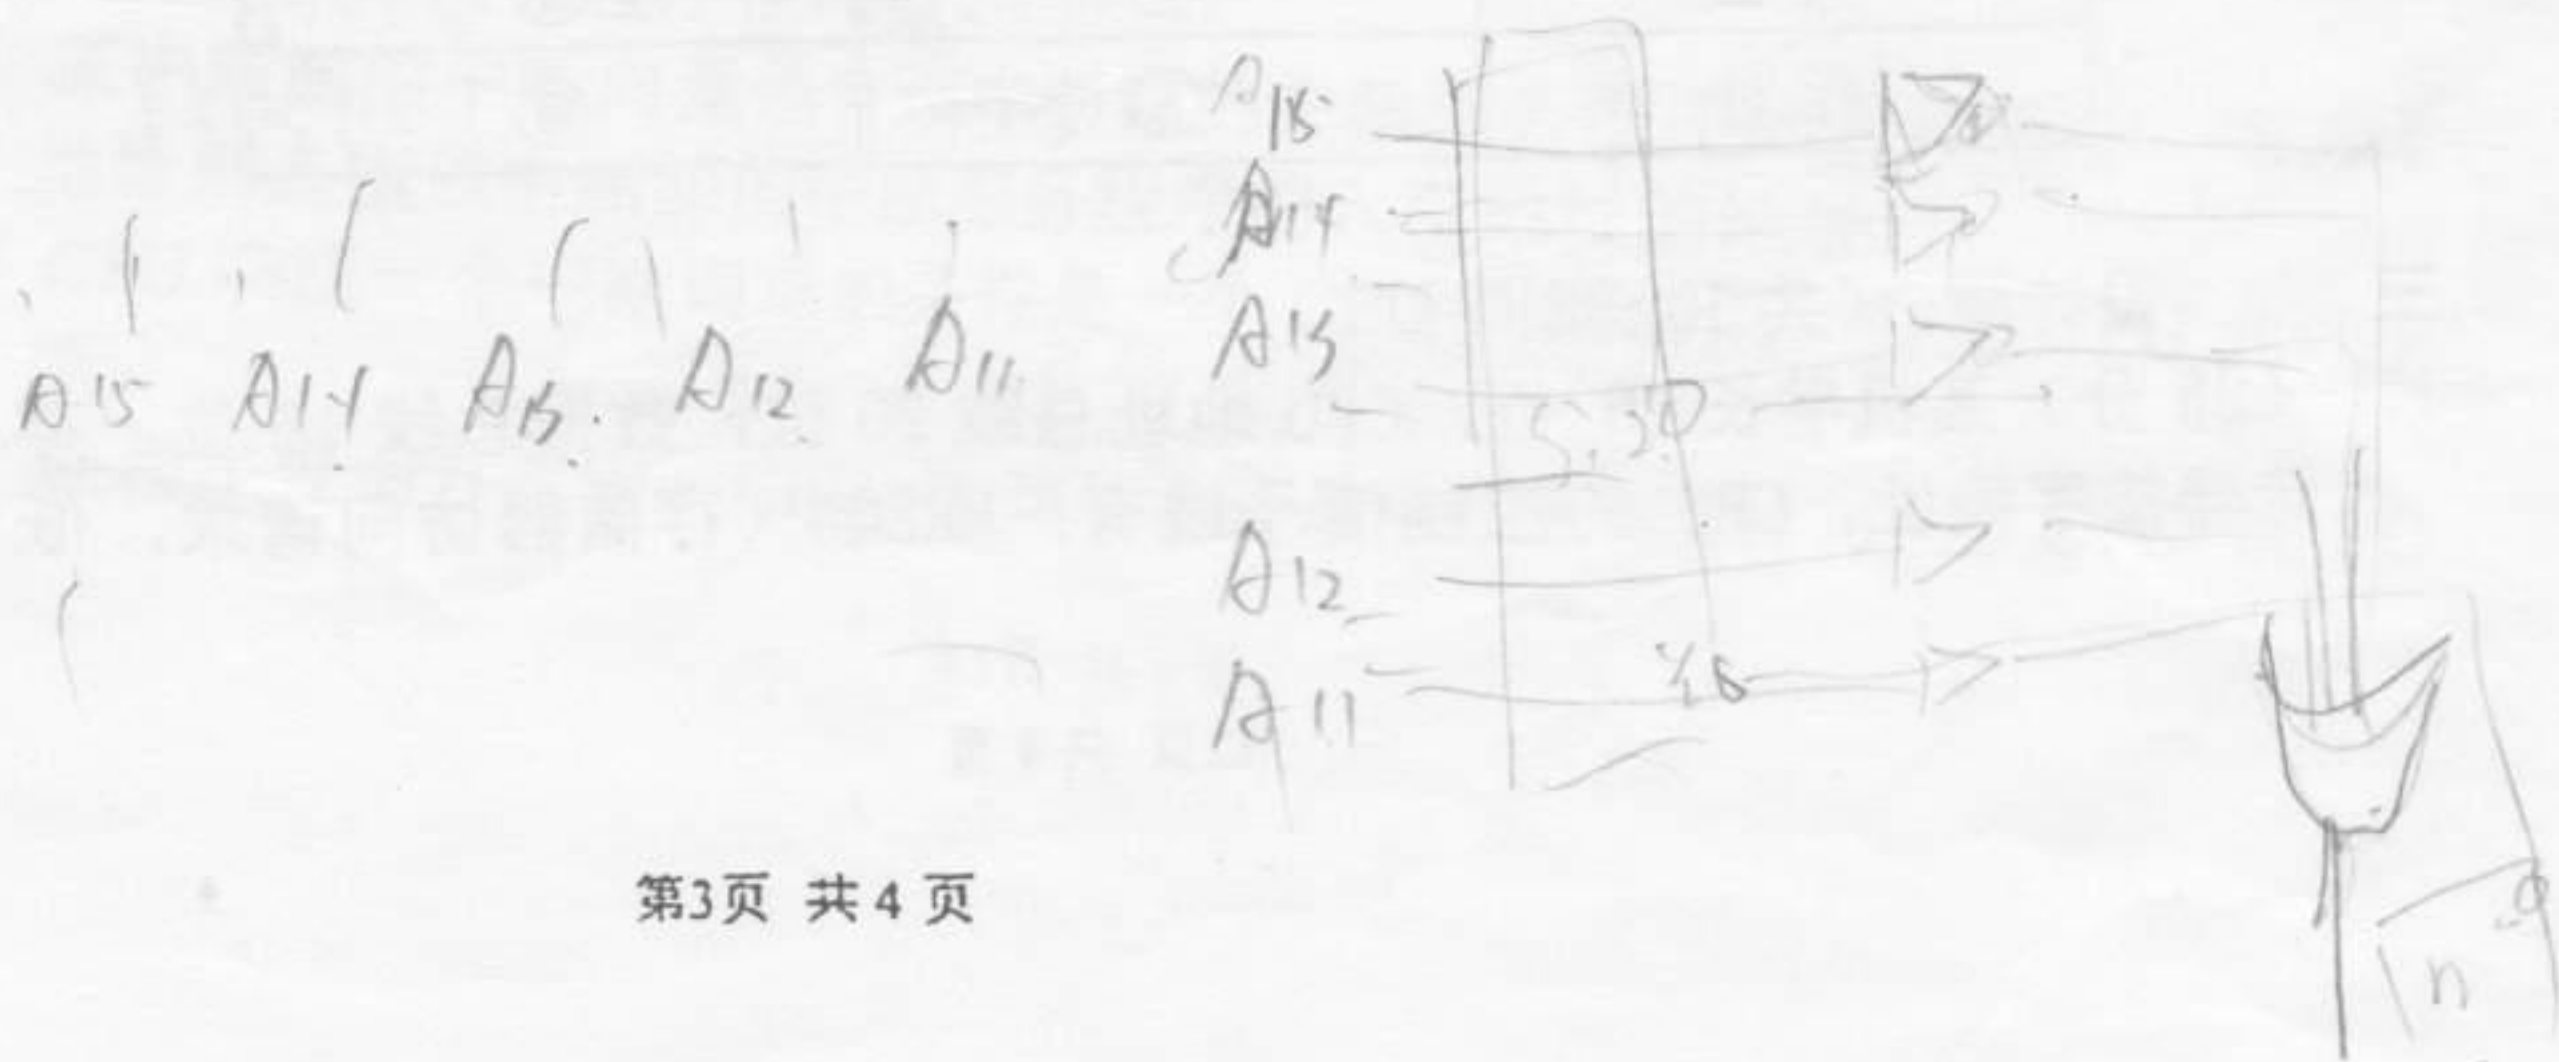 A15 A14 A13 A12 A11
A15
A14
A13
A12
A11
n
第3页 共4页